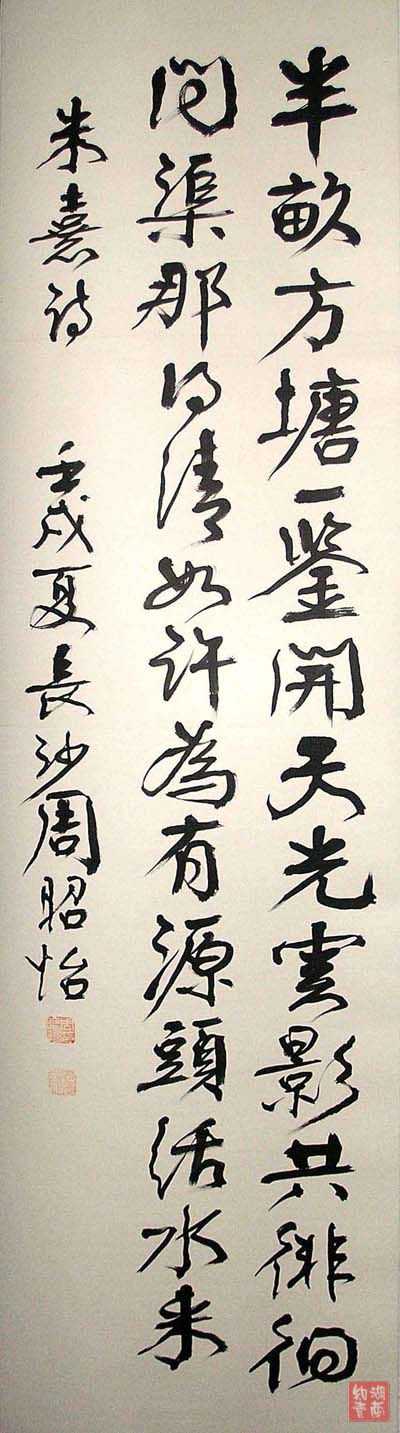 半畝方塘一鑒開天光雲影共徘徊
問渠那得清如許為有源頭活水来
朱熹詩 壬戌夏長沙周昭怡